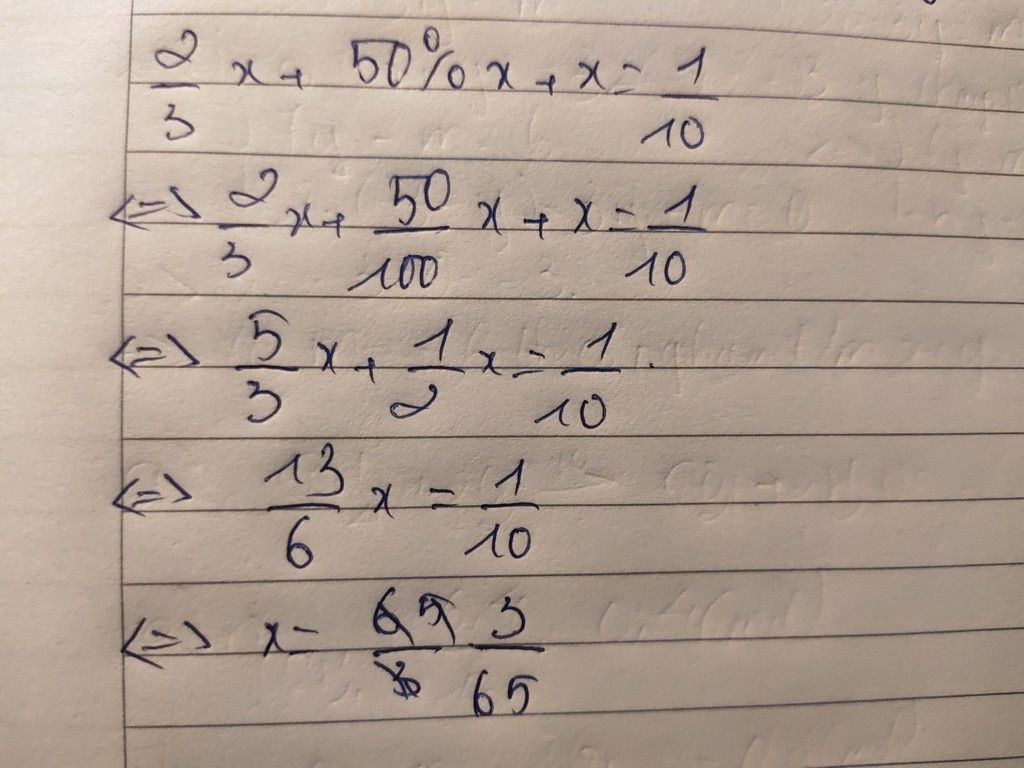 2/3 x + 50% x + x = 1/10
<=> 2/3 x + 50/100 x + x = 1/10
<=> 5/3 x + 1/2 x = 1/10.
<=> 13/6 x = 1/10
<=> x = 3/65